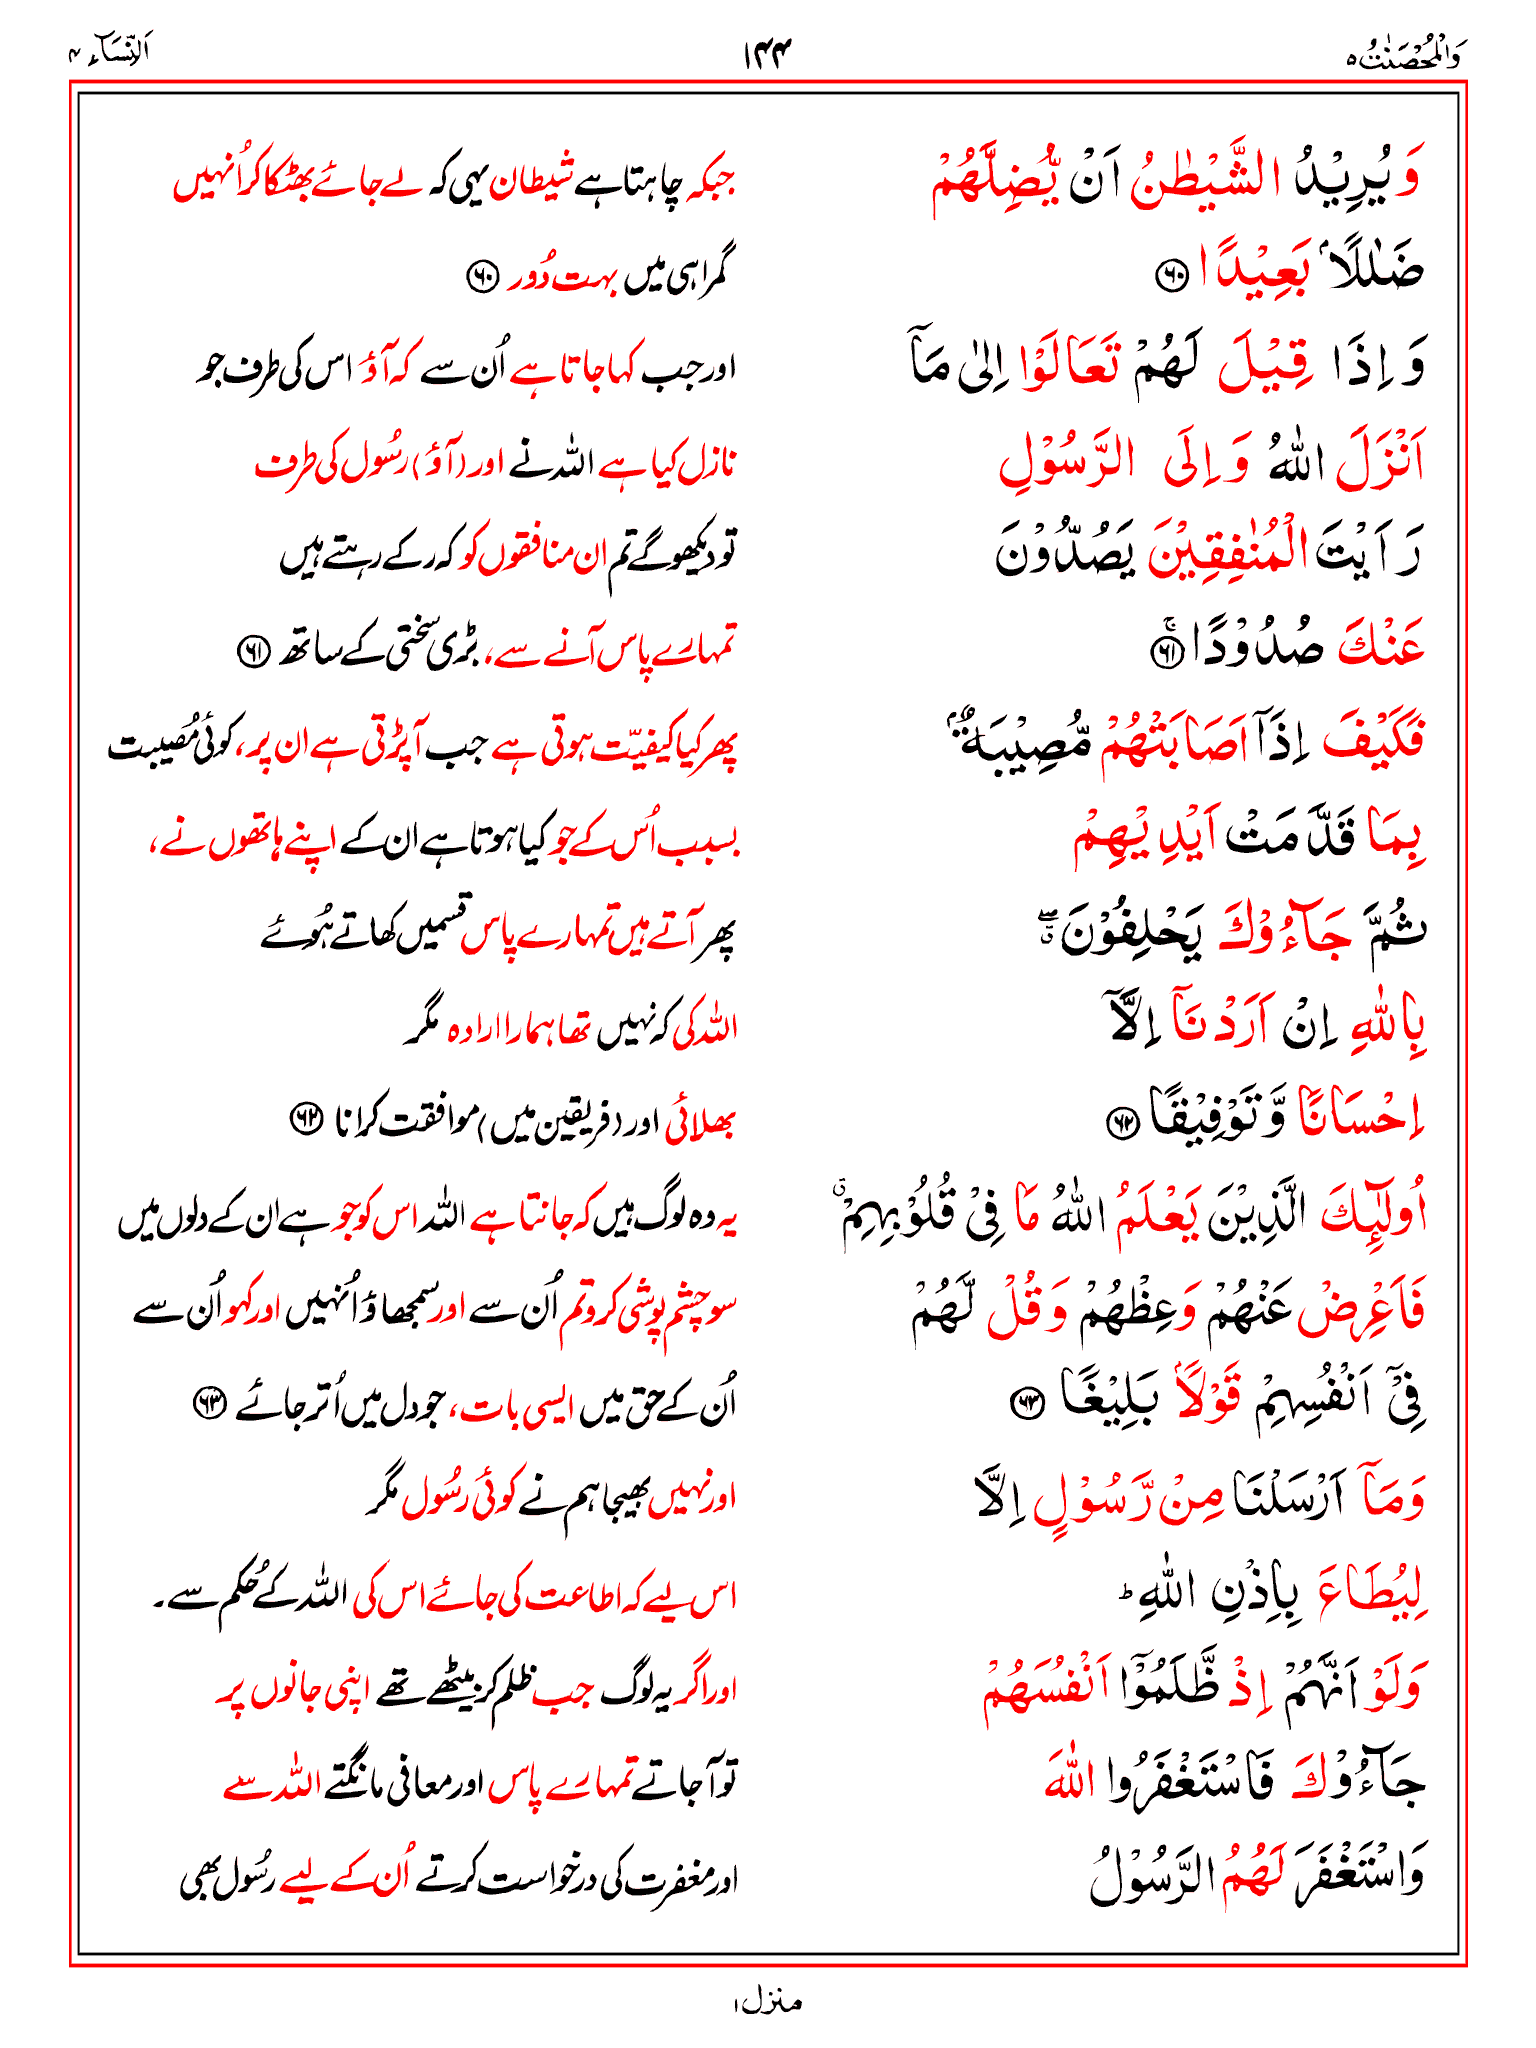 وَالْمُحْصَنٰتُ ۵ ۱۴۴ اَلنِّسَآء ۴
وَيُرِيْدُ الشَّيْطٰنُ اَنْ يُّضِلَّهُمْ جبکہ چاہتا ہے شیطان یہی کہ لے جائے بھٹکا کر اُنہیں
ضَلٰلًاۢ بَعِيْدًا ۶۰ گمراہی میں بہت دُور ۶۰
وَاِذَا قِيْلَ لَهُمْ تَعَالَوْا اِلٰى مَآ اور جب کہا جاتا ہے اُن سے کہ آؤ اس کی طرف جو
اَنْزَلَ اللّٰهُ وَاِلَى الرَّسُوْلِ نازل کیا ہے اللہ نے اور (آؤ) رسُول کی طرف
رَاَيْتَ الْمُنٰفِقِيْنَ يَصُدُّوْنَ تو دیکھو گے تم ان منافقوں کو کہ رکے رہتے ہیں
عَنْكَ صُدُوْدًاۚ ۶۱ تمہارے پاس آنے سے، بڑی سختی کے ساتھ ۶۱
فَكَيْفَ اِذَآ اَصَابَتْهُمْ مُّصِيْبَةٌۢ پھر کیا کیفیّت ہوتی ہے جب آ پڑتی ہے ان پر، کوئی مُصیبت
بِمَا قَدَّمَتْ اَيْدِيْهِمْ بسبب اُس کے جو کیا ہوتا ہے ان کے اپنے ہاتھوں نے،
ثُمَّ جَآءُوْكَ يَحْلِفُوْنَ ۖۗ پھر آتے ہیں تمہارے پاس قسمیں کھاتے ہُوئے
بِاللّٰهِ اِنْ اَرَدْنَآ اِلَّآ اللہ کی کہ نہیں تھا ہمارا ارادہ مگر
اِحْسَانًا وَّتَوْفِيْقًا ۶۲ بھلائی اور (فریقین میں) موافقت کرانا ۶۲
اُولٰٓئِكَ الَّذِيْنَ يَعْلَمُ اللّٰهُ مَا فِيْ قُلُوْبِهِمْۗ یہ وہ لوگ ہیں کہ جانتا ہے اللہ اس کو جو ہے ان کے دلوں میں
فَاَعْرِضْ عَنْهُمْ وَعِظْهُمْ وَقُلْ لَّهُمْ سو چشم پوشی کرو تم اُن سے اور سمجھاؤ اُنہیں اور کہو اُن سے
فِيْٓ اَنْفُسِهِمْ قَوْلًاۢ بَلِيْغًا ۶۳ اُن کے حق میں ایسی بات، جو دل میں اُتر جائے ۶۳
وَمَآ اَرْسَلْنَا مِنْ رَّسُوْلٍ اِلَّا اور نہیں بھیجا ہم نے کوئی رسُول مگر
لِيُطَاعَ بِاِذْنِ اللّٰهِ ؕ اس لیے کہ اطاعت کی جائے اس کی اللہ کے حُکم سے۔
وَلَوْ اَنَّهُمْ اِذْ ظَّلَمُوْٓا اَنْفُسَهُمْ اور اگر یہ لوگ جب ظلم کر بیٹھے تھے اپنی جانوں پر
جَآءُوْكَ فَاسْتَغْفَرُوا اللّٰهَ تو آ جاتے تمہارے پاس اور معافی مانگتے اللہ سے
وَاسْتَغْفَرَ لَهُمُ الرَّسُوْلُ اور مغفرت کی درخواست کرتے اُن کے لیے رسُول بھی
منزل ۱